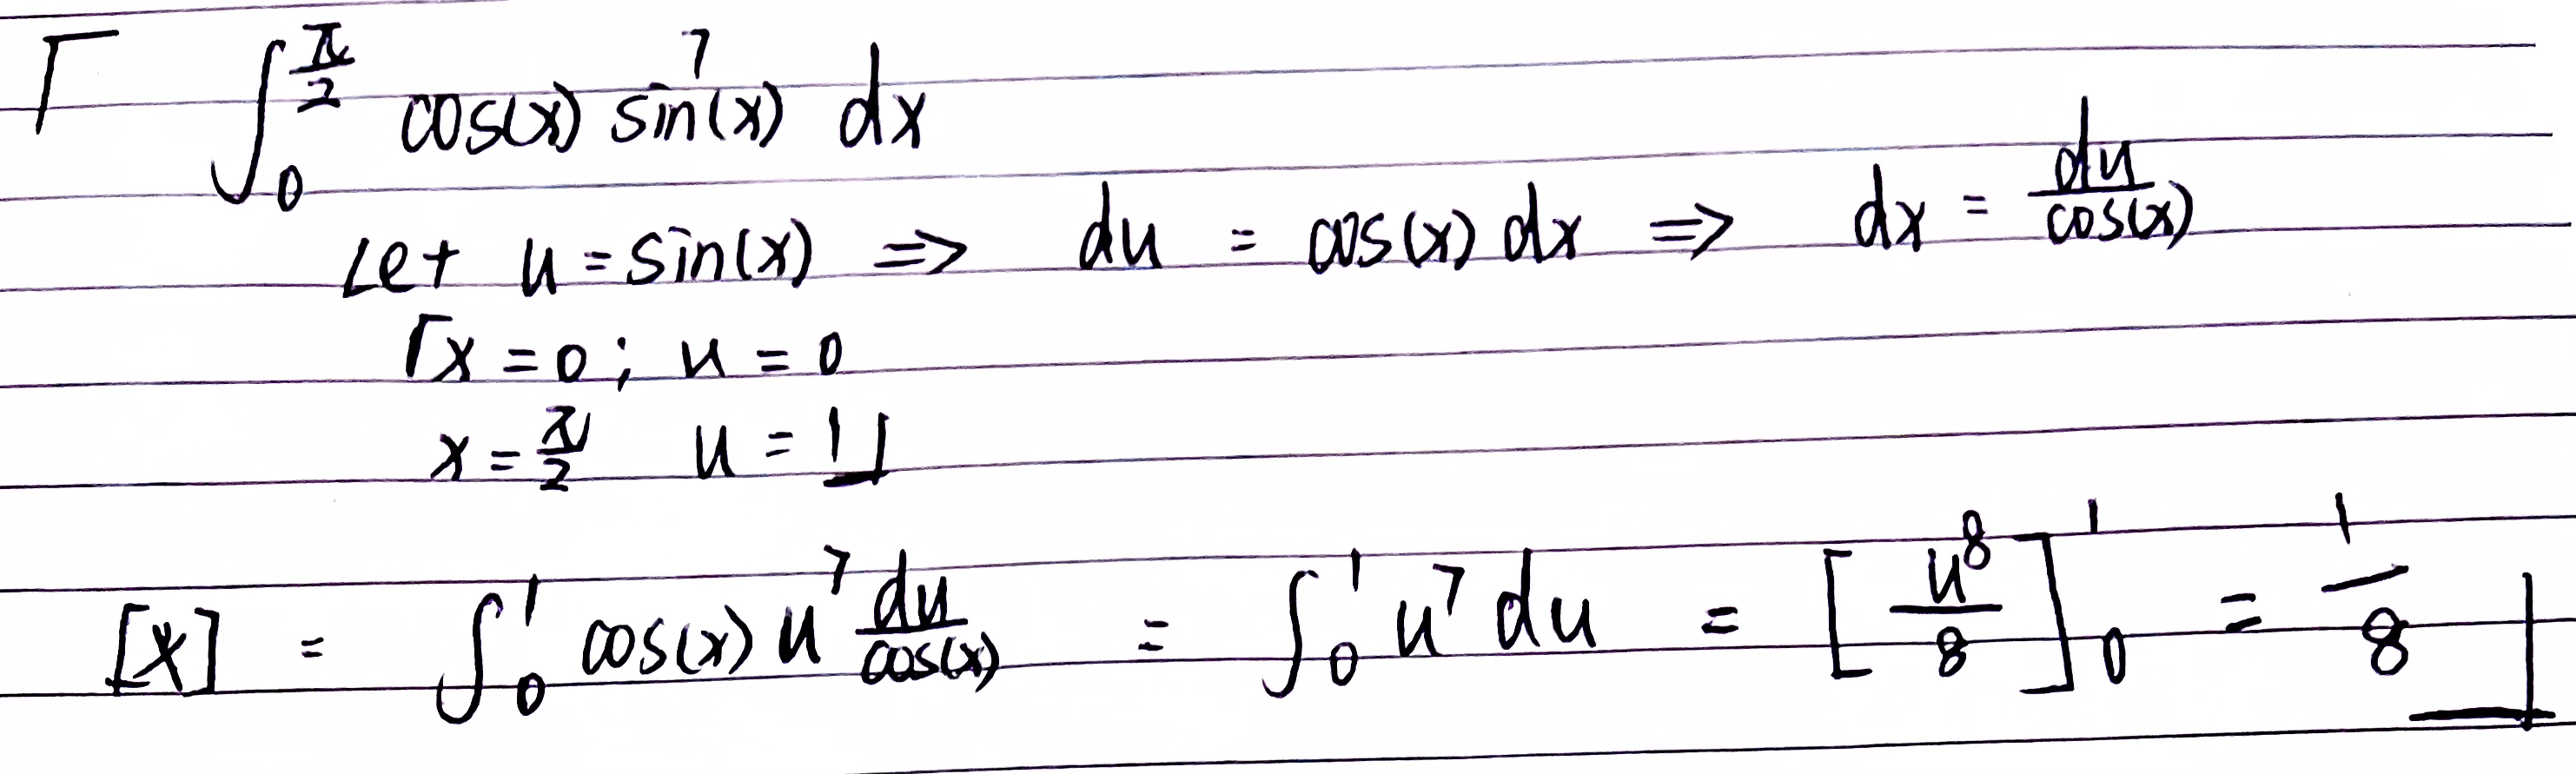 ⌈ ∫₀^{π/2} cos(x) sin⁷(x) dx
Let u = sin(x) => du = cos(x) dx => dx = du/cos(x)
⌈x = 0 ; u = 0
x = π/2 u = 1⌋
[*] = ∫₀¹ cos(x) u⁷ du/cos(x) = ∫₀¹ u⁷ du = [u⁸/8]₀¹ = 1/8 ⌋